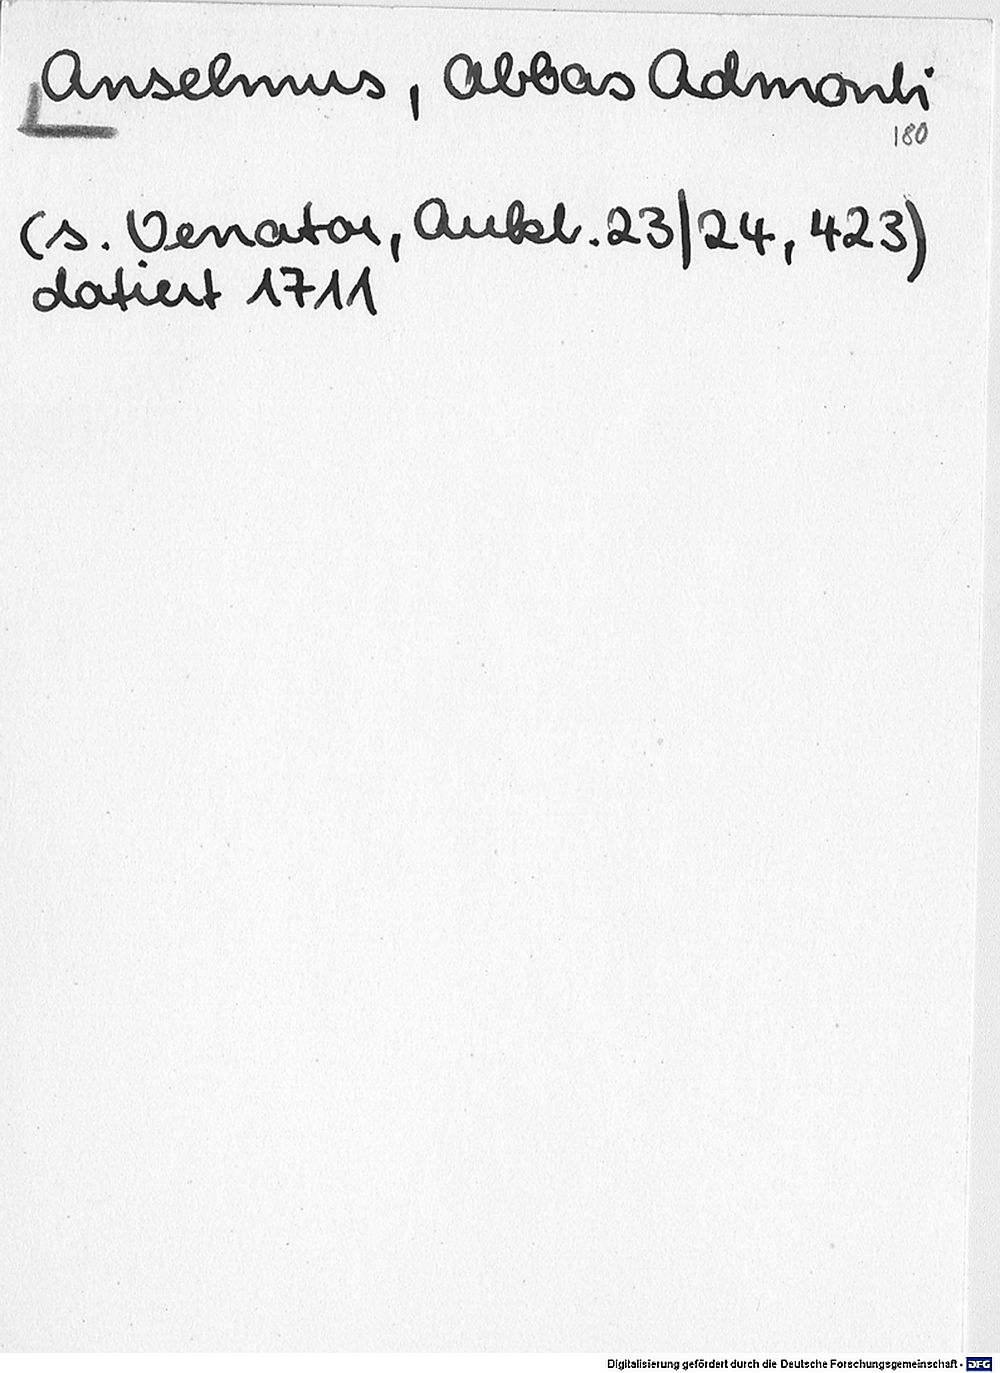 Anselmus, Abbas Admonti
180
(s. Venator, Aukt. 23/24, 423)
datiert 1711
Digitalisierung gefördert durch die Deutsche Forschungsgemeinschaft - DFG